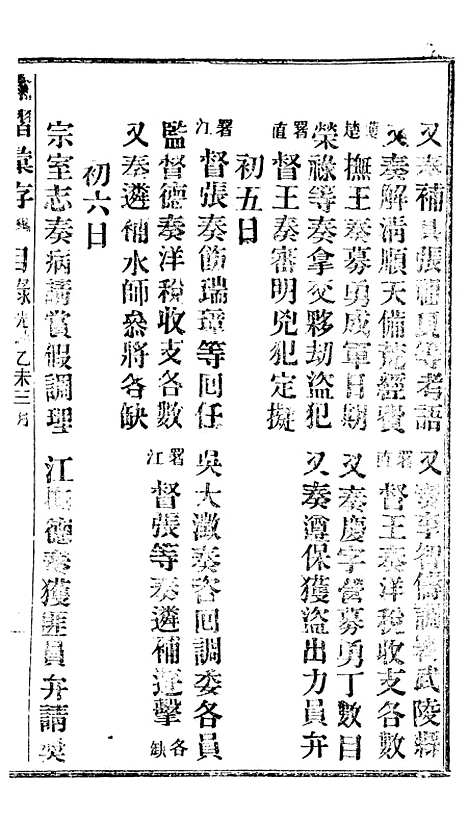 又奏補具張聯夏等考語　又奏李智儔調署武陵縣
又奏解清順天備荒經費　署直督王奏洋稅收支各數
護楚撫王奏募勇成軍日期　又奏慶字營募勇丁數目
榮祿等奏拿交夥劫盜犯　又奏遵保獲盜出力員弁
署直督王奏審明兇犯定擬
初五日
署江督張奏飭瑞璋等回任　吳大澂奏咨回調委各員
監督德奏洋稅收支各數　署江督張等奏遴補遊擊各缺
又奏遴補水師叅將各缺
初六日
宗室志奏病請賞假調理　江 德奏獲匪員弁請獎
諭摺彙存 目錄 光 乙未三月